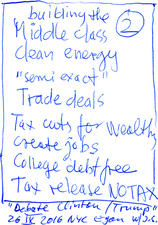 building the
②
Middle class
Clean energy
"semi exact"
Trade deals
Tax cuts for wealthy
create jobs
College debt free
Tax release NO TAX
"Debate Clinton/Trump"
26 IX 2016 NYC